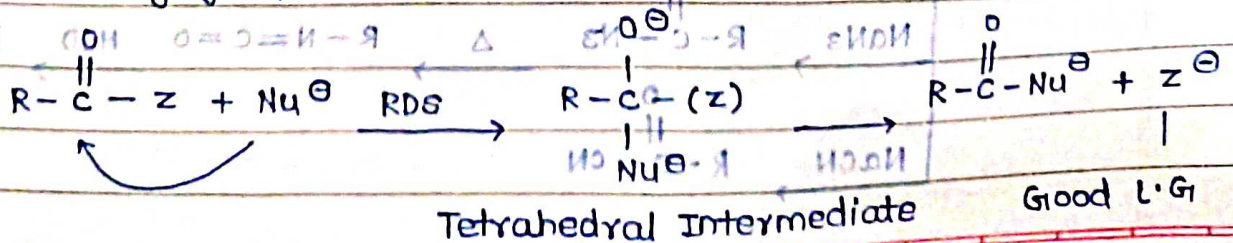 O O⊖ O
|| | ||
R - C - Z + Nu⊖ RDS R - C - (Z) R - C - Nu⊖ + Z⊖
| |
Nu⊖
Tetrahedral Intermediate Good L.G